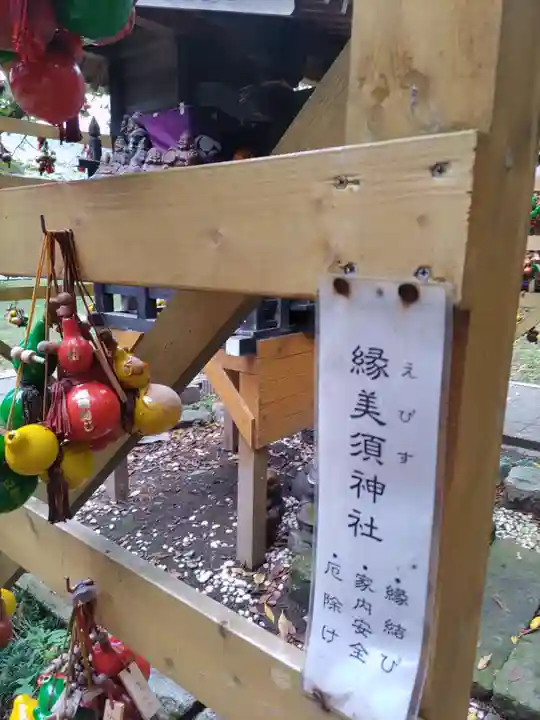 縁美須神社
えびす
・縁結び
・家内安全
・厄除け